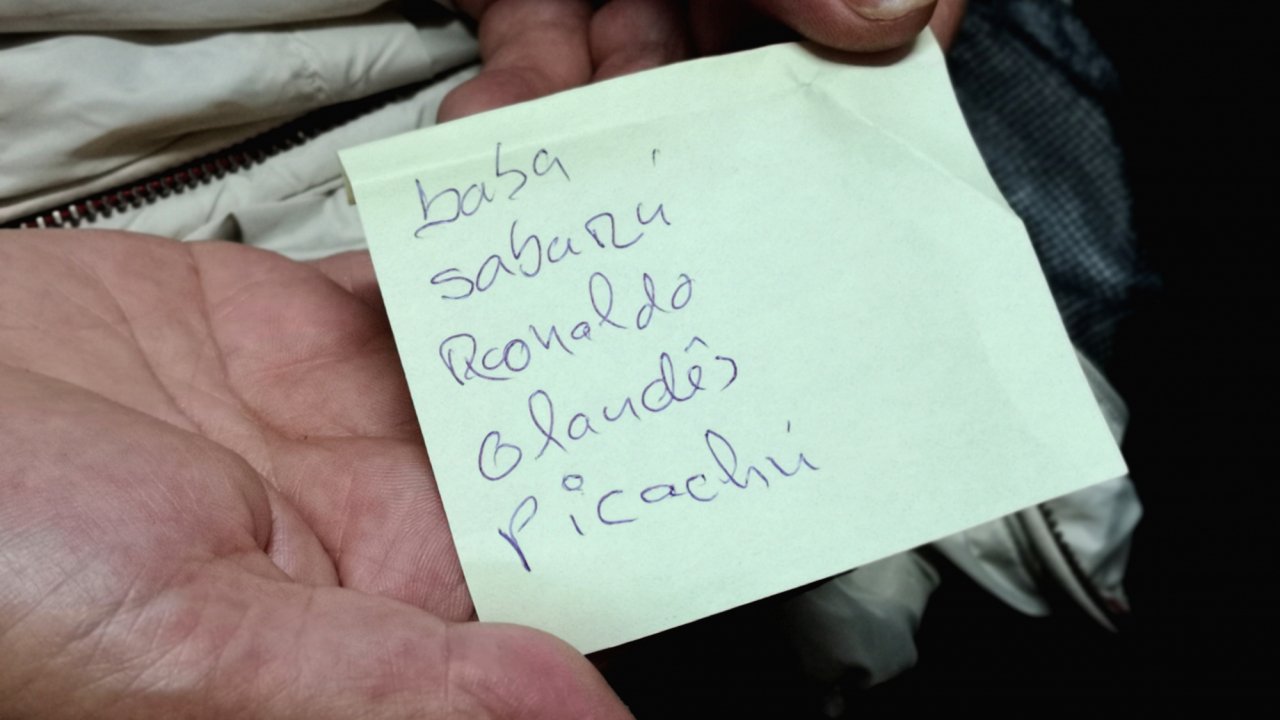 baba
sabazú
Ronaldo
olandês
picachú